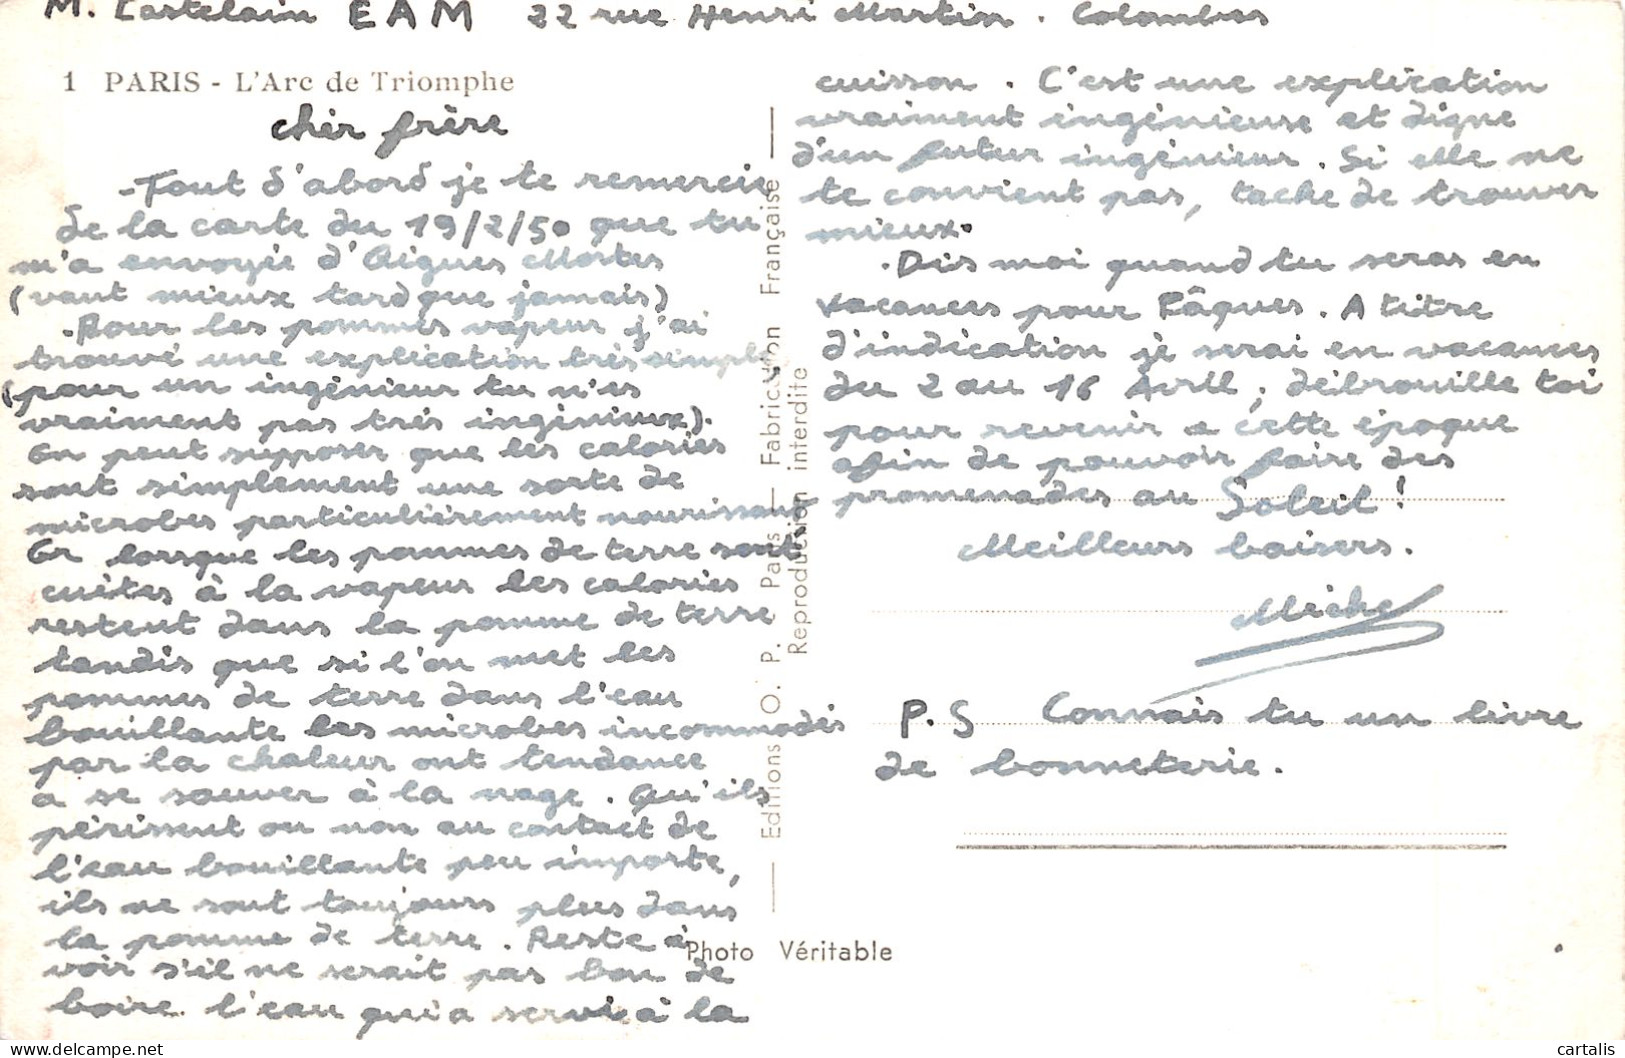 M. Castelain EAM 22 rue Henri Martin. Colombes
1 PARIS - L'Arc de Triomphe
cher frère
Tout d'abord je te remercie
de la carte du 19/2/50 que tu
m'a envoyée d'Aigues Mortes
(vaut mieux tard que jamais)
Pour les pommes vapeur j'ai
trouvé une explication très simple
(pour un ingénieur tu n'es
vraiment pas très ingénieux).
On peut supposer que les calories
sont simplement une sorte de
microbes particulièrement nourissant
Or lorsque les pommes de terre sont
cuites à la vapeur les calories
restent dans la pomme de terre
tandis que si l'on met les
pommes de terre dans l'eau
bouillante les microbes incommodés
par la chaleur ont tendance
a se sauver à la nage. Qu'ils
périssent ou non au contact de
l'eau bouillante peu importe,
ils ne sont toujours plus dans
la pomme de terre. Reste à
voir s'il ne serait pas bon de
boire l'eau qui a servi à la
cuisson. C'est une explication
vraiment ingénieuse et digne
d'un futur ingénieur. Si elle ne
te convient pas, tache de trouver
mieux.
Dis moi quand tu seras en
vacances pour Pâques. A titre
d'indication je serai en vacances
du 2 au 16 Avril, débrouille toi
pour revenir a cette époque
afin de pouvoir faire des
promenades au Soleil!
Meilleurs baisers.
Michel
P.S Connais tu un livre
de bonneterie.
Editions O. P. Paris — Fabrication Française
Reproduction interdite
Photo Véritable
cartalis